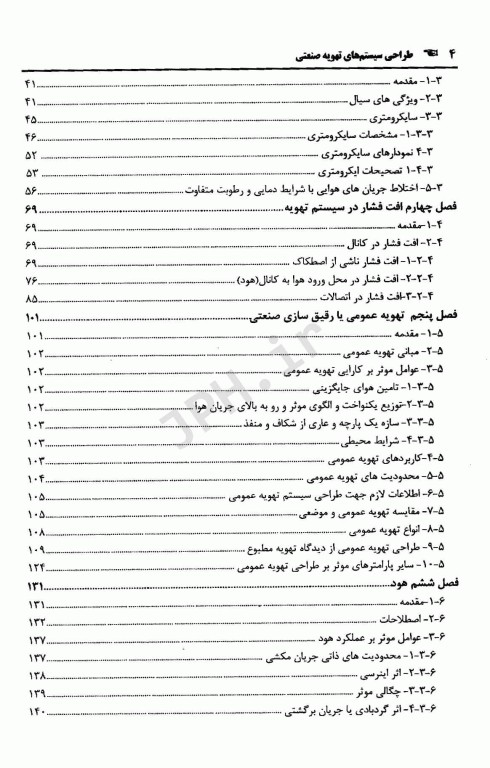 ۴ ☜ طراحی سیستم‌های تهویه صنعتی
۳-۱- مقدمه ........ ۴۱
۳-۲- ویژگی های سیال ........ ۴۱
۳-۳- سایکرومتری ........ ۴۵
۳-۳-۱- مشخصات سایکرومتری ........ ۴۶
۳-۴ نمودارهای سایکرومتری ........ ۵۲
۳-۴-۱ تصحیحات ایکرومتری ........ ۵۳
۳-۵- اختلاط جریان های هوایی با شرایط دمایی و رطوبت متفاوت ........ ۵۶
فصل چهارم افت فشار در سیستم تهویه ........ ۶۹
۴-۱-مقدمه ........ ۶۹
۴-۲- افت فشار در کانال ........ ۶۹
۴-۲-۱- افت فشار ناشی از اصطکاک ........ ۶۹
۴-۲-۲- افت فشار در محل ورود هوا به کانال(هود) ........ ۷۶
۴-۲-۳-افت فشار در اتصالات ........ ۸۵
فصل پنجم تهویه عمومی یا رقیق سازی صنعتی ........ ۱۰۱
۵-۱- مقدمه ........ ۱۰۱
۵-۲- مبانی تهویه عمومی ........ ۱۰۲
۵-۳-عوامل موثر بر کارایی تهویه عمومی ........ ۱۰۲
۵-۳-۱- تامین هوای جایگزینی ........ ۱۰۲
۵-۳-۲-توزیع یکنواخت و الگوی موثر و رو به بالای جریان هوا ........ ۱۰۲
۵-۳-۳- سازه یک پارچه و عاری از شکاف و منفذ ........ ۱۰۳
۵-۳-۴- شرایط محیطی ........ ۱۰۳
۵-۴-کاربردهای تهویه عمومی ........ ۱۰۳
۵-۵- محدودیت های تهویه عمومی ........ ۱۰۴
۵-۶- اطلاعات لازم جهت طراحی سیستم تهویه عمومی ........ ۱۰۵
۵-۷- مقایسه تهویه عمومی و موضعی ........ ۱۰۵
۵-۸- انواع تهویه عمومی ........ ۱۰۸
۵-۹- طراحی تهویه عمومی از دیدگاه تهویه مطبوع ........ ۱۰۹
۵-۱۰- سایر پارامترهای موثر بر طراحی تهویه عمومی ........ ۱۲۴
فصل ششم هود ........ ۱۳۱
۶-۱-مقدمه ........ ۱۳۱
۶-۲- اصطلاحات ........ ۱۳۲
۶-۳- عوامل موثر بر عملکرد هود ........ ۱۳۷
۶-۳-۱- محدودیت های ذاتی جریان مکشی ........ ۱۳۷
۶-۳-۲- اثر اینرسی ........ ۱۳۸
۶-۳-۳- چگالی موثر ........ ۱۳۹
۶-۳-۴- اثر گردبادی یا جریان برگشتی ........ ۱۴۰
JPH.ir